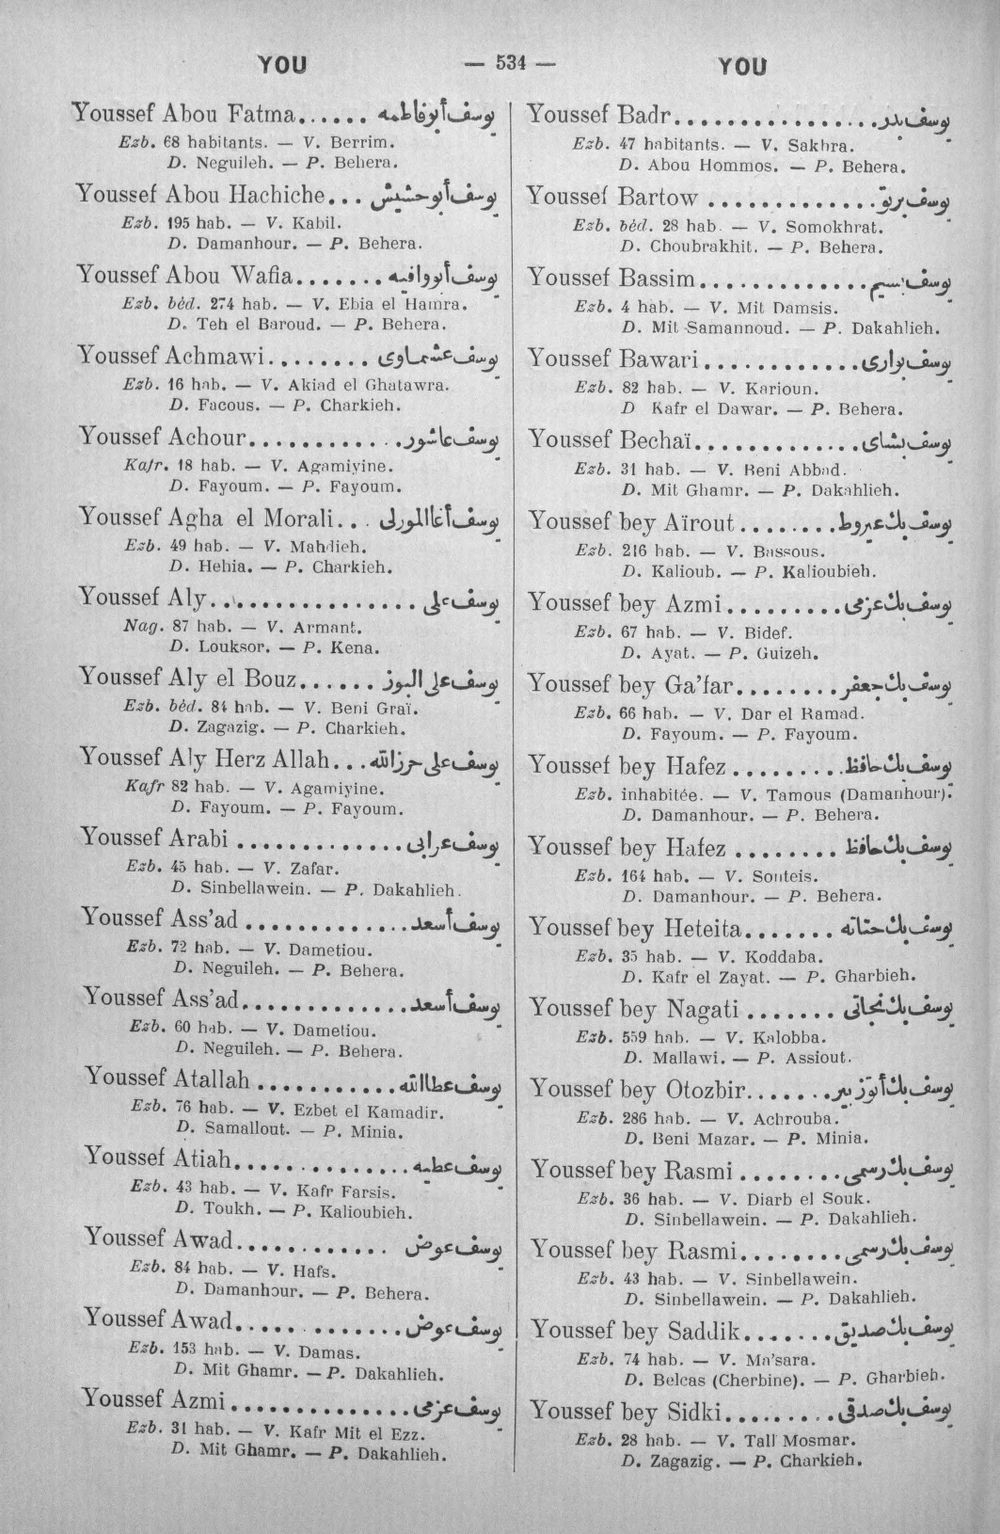 YOU — 534 — YOU
Youssef Abou Fatma...... يوسف أبو فاطمه
Ezb. 68 habitants. — V. Berrim.
D. Neguileh. — P. Behera.
Youssef Abou Hachiche... يوسف أبو حشيش
Ezb. 195 hab. — V. Kabil.
D. Damanhour. — P. Behera.
Youssef Abou Wafia....... يوسف أبو وافيه
Ezb. bèd. 274 hab. — V. Ebia el Hamra.
D. Teh el Baroud. — P. Behera.
Youssef Achmawi........ يوسف عشماوى
Ezb. 16 hab. — V. Akiad el Ghatawra.
D. Facous. — P. Charkieh.
Youssef Achour............ يوسف عاشور
Kafr. 18 hab. — V. Agamiyine.
D. Fayoum. — P. Fayoum.
Youssef Agha el Morali... يوسف أغا المورلى
Ezb. 49 hab. — V. Mahdieh.
D. Hehia. — P. Charkieh.
Youssef Aly................ يوسف على
Nag. 87 hab. — V. Armant.
D. Louksor. — P. Kena.
Youssef Aly el Bouz...... يوسف على البوز
Ezb. bèd. 84 hab. — V. Beni Graï.
D. Zagazig. — P. Charkieh.
Youssef Aly Herz Allah... يوسف على حرزالله
Kafr 82 hab. — V. Agamiyine.
D. Fayoum. — P. Fayoum.
Youssef Arabi ............. يوسف عرابى
Ezb. 45 hab. — V. Zafar.
D. Sinbellawein. — P. Dakahlieh.
Youssef Ass'ad ............. يوسف أسعد
Ezb. 72 hab. — V. Dametiou.
D. Neguileh. — P. Behera.
Youssef Ass'ad............. يوسف أسعد
Ezb. 60 hab. — V. Dametiou.
D. Neguileh. — P. Behera.
Youssef Atallah ........... يوسف عطاالله
Ezb. 76 hab. — V. Ezbet el Kamadir.
D. Samallout. — P. Minia.
Youssef Atiah............. يوسف عطيه
Ezb. 43 hab. — V. Kafr Farsis.
D. Toukh. — P. Kalioubieh.
Youssef Awad............ يوسف عوض
Ezb. 84 hab. — V. Hafs.
D. Damanhour. — P. Behera.
Youssef Awad............. يوسف عوض
Ezb. 153 hab. — V. Damas.
D. Mit Ghamr. — P. Dakahlieh.
Youssef Azmi .............. يوسف عزمى
Ezb. 31 hab. — V. Kafr Mit el Ezz.
D. Mit Ghamr. — P. Dakahlieh.
Youssef Badr................ يوسف بدر
Ezb. 47 habitants. — V. Sakhra.
D. Abou Hommos. — P. Behera.
Youssef Bartow ............. يوسف برتو
Ezb. bèd. 28 hab. — V. Somokhrat.
D. Choubrakhit. — P. Behera.
Youssef Bassim............. يوسف بسيم
Ezb. 4 hab. — V. Mit Damsis.
D. Mit Samannoud. — P. Dakahlieh.
Youssef Bawari............ يوسف بوارى
Ezb. 82 hab. — V. Karioun.
D Kafr el Dawar. — P. Behera.
Youssef Bechaï............. يوسف بشاى
Ezb. 31 hab. — V. Beni Abbad.
D. Mit Ghamr. — P. Dakahlieh.
Youssef bey Aïrout........ يوسف بك عيروط
Ezb. 216 hab. — V. Bassous.
D. Kalioub. — P. Kalioubieh.
Youssef bey Azmi......... يوسف بك عزمى
Ezb. 67 hab. — V. Bidef.
D. Ayat. — P. Guizeh.
Youssef bey Ga'far........ يوسف بك جعفر
Ezb. 66 hab. — V. Dar el Ramad.
D. Fayoum. — P. Fayoum.
Youssef bey Hafez ......... يوسف بك حافظ
Ezb. inhabitée. — V. Tamous (Damanhour).
D. Damanhour. — P. Behera.
Youssef bey Hafez ........ يوسف بك حافظ
Ezb. 164 hab. — V. Sonteis.
D. Damanhour. — P. Behera.
Youssef bey Heteita....... يوسف بك حتاته
Ezb. 35 hab. — V. Koddaba.
D. Kafr el Zayat. — P. Gharbieh.
Youssef bey Nagati ....... يوسف بك نجاتى
Ezb. 559 hab. — V. Kalobba.
D. Mallawi. — P. Assiout.
Youssef bey Otozbir....... يوسف بك أتوزبير
Ezb. 286 hab. — V. Achrouba.
D. Beni Mazar. — P. Minia.
Youssef bey Rasmi ........ يوسف بك رسمى
Ezb. 36 hab. — V. Diarb el Souk.
D. Sinbellawein. — P. Dakahlieh.
Youssef bey Rasmi........ يوسف بك رسمى
Ezb. 43 hab. — V. Sinbellawein.
D. Sinbellawein. — P. Dakahlieh.
Youssef bey Saddik....... يوسف بك صديق
Ezb. 74 hab. — V. Ma'sara.
D. Belcas (Cherbine). — P. Gharbieh.
Youssef bey Sidki......... يوسف بك صدقى
Ezb. 28 hab. — V. Tall Mosmar.
D. Zagazig. — P. Charkieh.